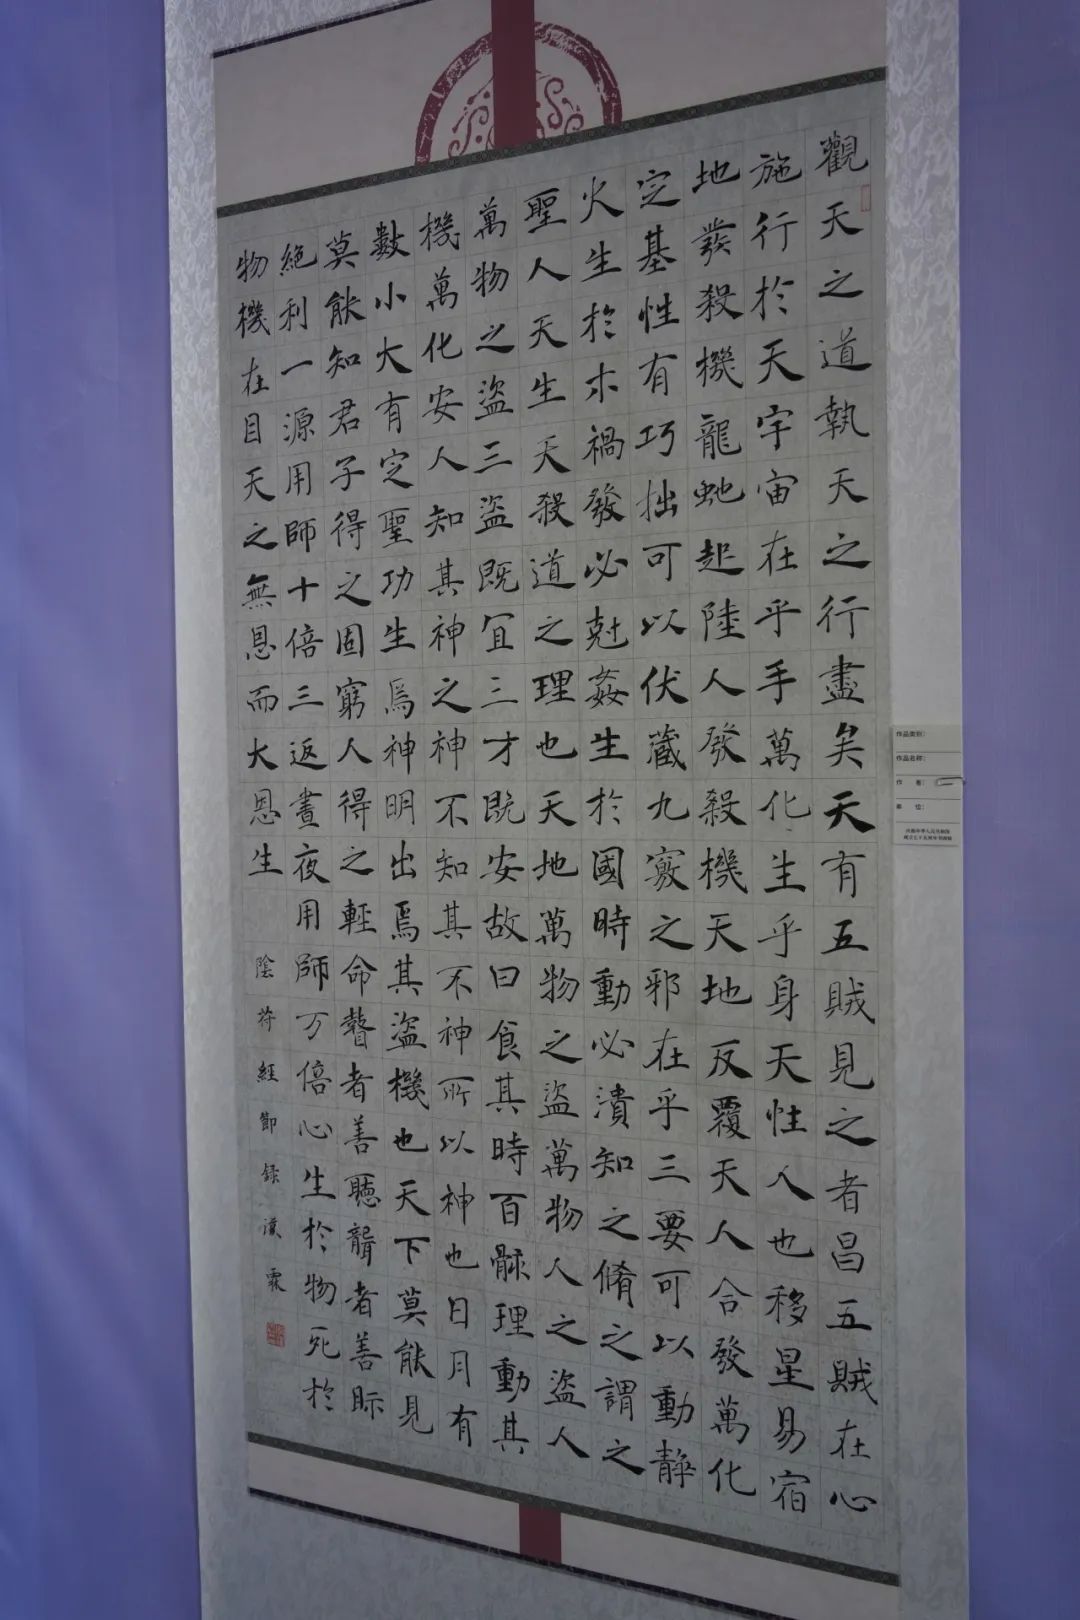 觀天之道執天之行盡矣天有五賊見之者昌五賊在心
施行於天宇宙在乎手萬化生乎身天性人也移星易宿
地發殺機龍虵起陸人發殺機天地反覆天人合發萬化
定基性有巧拙可以伏藏九竅之邪在乎三要可以動靜
火生於木禍發必尅姦生於國時動必潰知之脩之謂之
聖人天生天殺道之理也天地萬物之盜萬物人之盜人
萬物之盜三盜既宜三才既安故曰食其時百骸理動其
機萬化安人知其神之神不知其不神所以神也日月有
數小大有定聖功生焉神明出焉其盜機也天下莫能見
莫能知君子得之固窮人得之輕命瞽者善聽聾者善眎
絕利一源用師十倍三返晝夜用師万倍心生於物死於
物機在目天之無恩而大恩生 陰符經節録漢霖
作品类别：
作品名称：
作 者：
单 位：